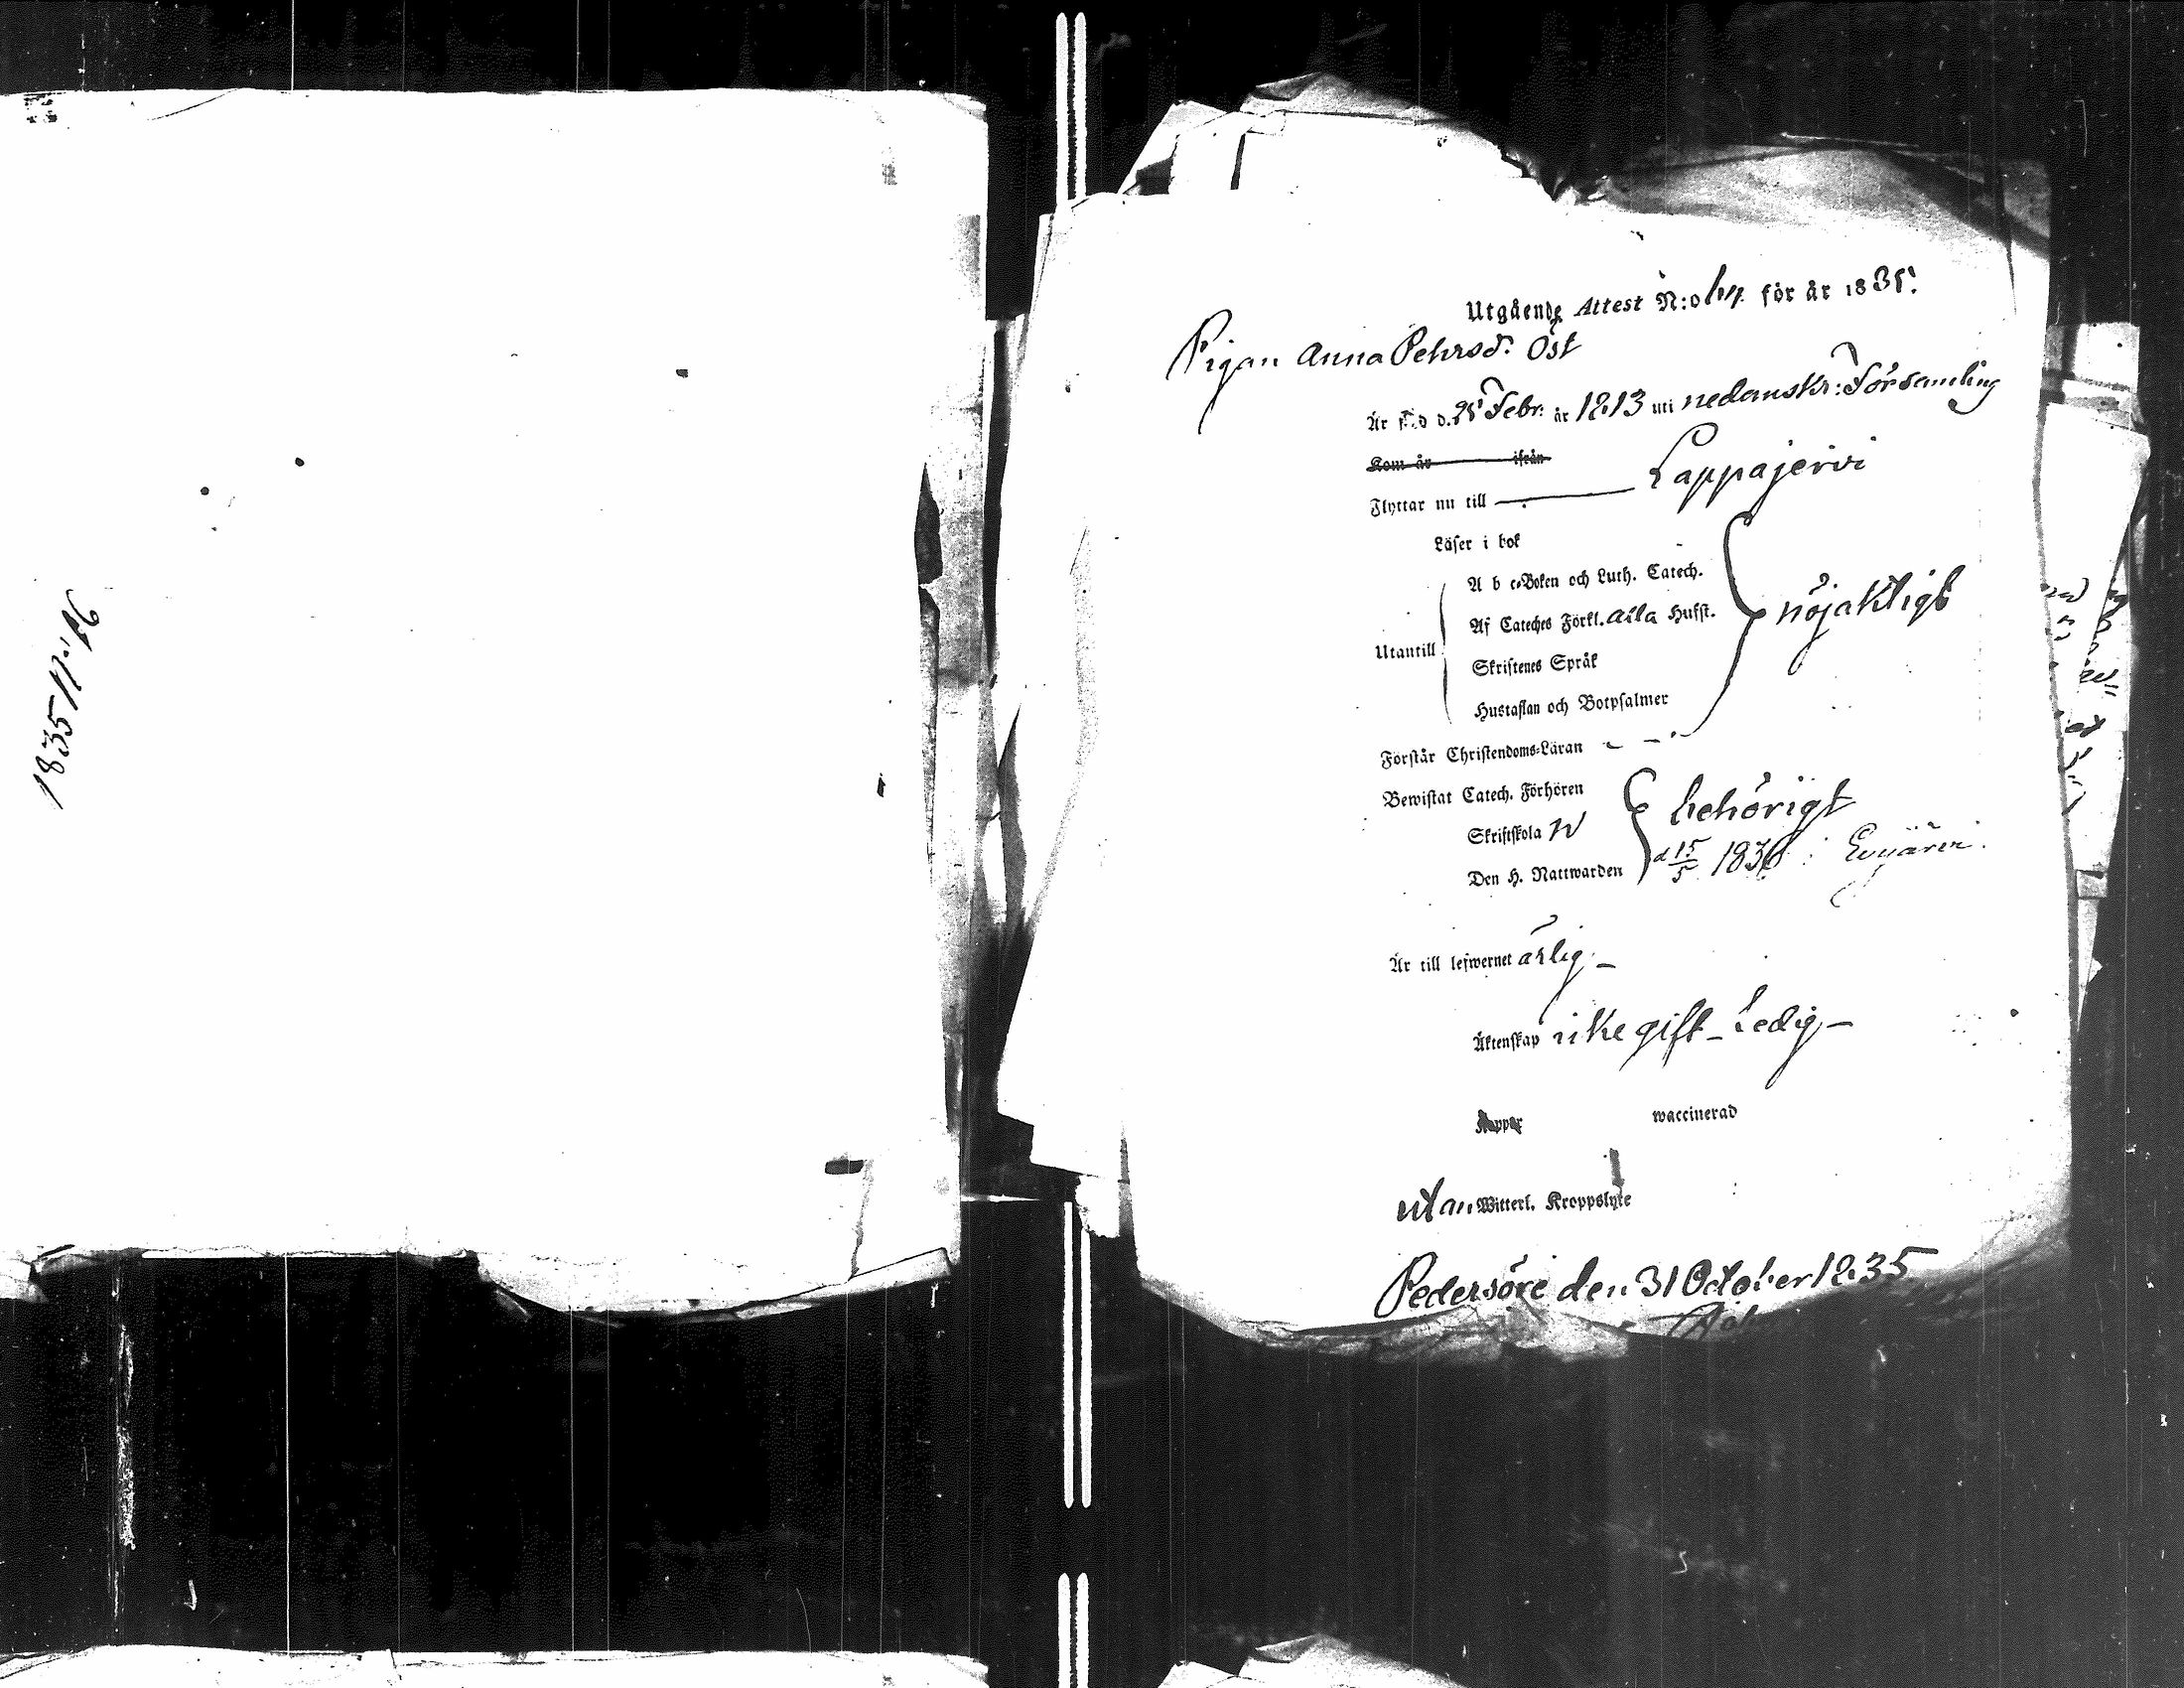 1835 N:
Utgående Attest N:o för år 1835.
Pigan Anna Pehrsd. Öst
Är född d. 25 Febr. år 1813 uti nedanskr: Församling
Kom år ifrån
Flyttar nu till Lappajervi
Läser i bok
A b c-Boken och Luth. Catech.
Af Cateches Förkl. alla Husst. nöjaktigt
Utantill
Skriftenes Språk
Hustaflan och Botpsalmer
Förstår Christendoms-Läran
Bewistat Catech. Förhören
behörigt
Skriftskola
Den H. Nattwarden d 15/5 183 i Evijärvi.
Är till lefwernet ärlig
Äktenskap icke gift - Ledig -
Koppor waccinerad
utan Witterl. Kroppslyte
Pedersöre den 31 October 1835